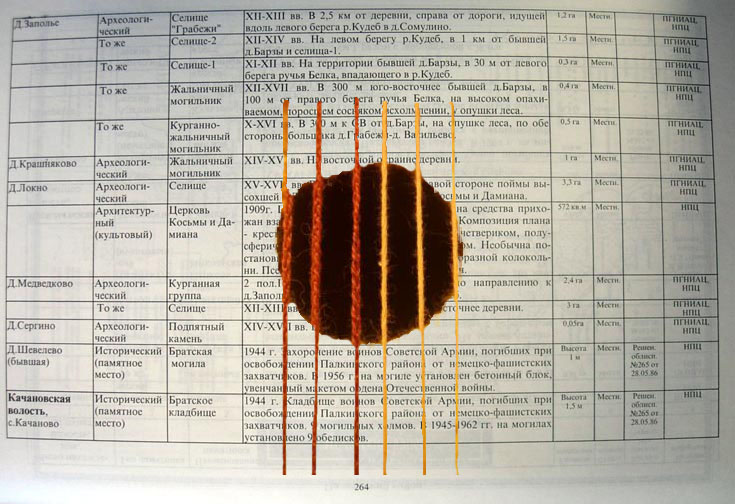 Д.Заполье
Археологи-
ческий
Селище
"Грабежи"
XII-XIII вв. В 2,5 км от деревни, справа от дороги, идущей
вдоль левого берега р.Кудеб в д.Сомулино.
1,2 га
Местн.
ПГНИАЦ,
НПЦ
То же
Селище-2
XII-XIV вв. На левом берегу р.Кудеб, в 1 км от бывшей
д.Барзы и селища-1.
1,5 га
Местн.
ПГНИАЦ,
НПЦ
То же
Селище-1
XI-XII вв. На территории бывшей д.Барзы, в 30 м от левого
берега ручья Белка, впадающего в р.Кудеб.
0,3 га
Местн.
ПГНИАЦ,
НПЦ
То же
Жальничный
могильник
XII-XVII вв. В 300 м юго-восточнее бывшей д.Барзы, в
100 м от правого берега ручья Белка, на высоком опахи-
ваемом, поросшем сосняком всхолмлении, у опушки леса.
0,4 га
Местн.
ПГНИАЦ,
НПЦ
То же
Курганно-
жальничный
могильник
X-XVI вв. В 300 м к СВ от д.Барзы, на опушке леса, по обе
стороны большака д.Грабежи-д. Васильево.
0,5 га
Местн.
ПГНИАЦ,
НПЦ
Д.Крашняково
Археологи-
ческий
Жальничный
могильник
XIV-XV вв. На восточной окраине деревни.
1 га
Местн.
ПГНИАЦ,
НПЦ
Д.Локно
Археологи-
ческий
Селище
XV-XVI стороне поймы вы-
сохшей Косьмы и Дамиана.
3,3 га
Местн.
ПГНИАЦ,
НПЦ
Архитектур-
ный
(культовый)
Церковь
Косьмы и Да-
миана
1909г. на средства прихо-
жан Композиция плана
- четвериком, полу-
Необычна по-
колоколь-
ни.
572 кв.м
Местн.
НПЦ
Д.Медведково
Археологи-
ческий
Курганная
группа
2 пол. по направлению к
2,4 га
Местн.
ПГНИАЦ,
НПЦ
То же
Селище
XII-XIII деревни.
3 га
Местн.
ПГНИАЦ,
НПЦ
Д.Сергино
Археологи-
ческий
Подпятный
камень
XIV-XVII вв.
0,05га
Местн.
ПГНИАЦ,
НПЦ
Д.Шевелево
(бывшая)
Исторический
(памятное
место)
Братская
могила
1944 г. Захоронение воинов Советской Армии, погибших при
освобождении Палкинского района от немецко-фашистских
захватчиков. В 1956 г. на могиле установлен бетонный блок,
увенчанный макетом ордена Отечественной войны.
Высота
1 м
Местн.
Решен.
облисп.
№265 от
28.05.86
НПЦ
Качановская
волость,
с.Качаново
Исторический
(памятное
место)
Братское
кладбище
1944 г. Кладбище воинов Советской Армии, погибших при
освобождении Палкинского района от немецко-фашистских
захватчиков. 9 могильных холмов. В 1945-1962 гг. на могилах
установлено 9 обелисков.
Высота
1,5 м
Местн.
Решен.
облисп.
№265 от
28.05.86
НПЦ
264